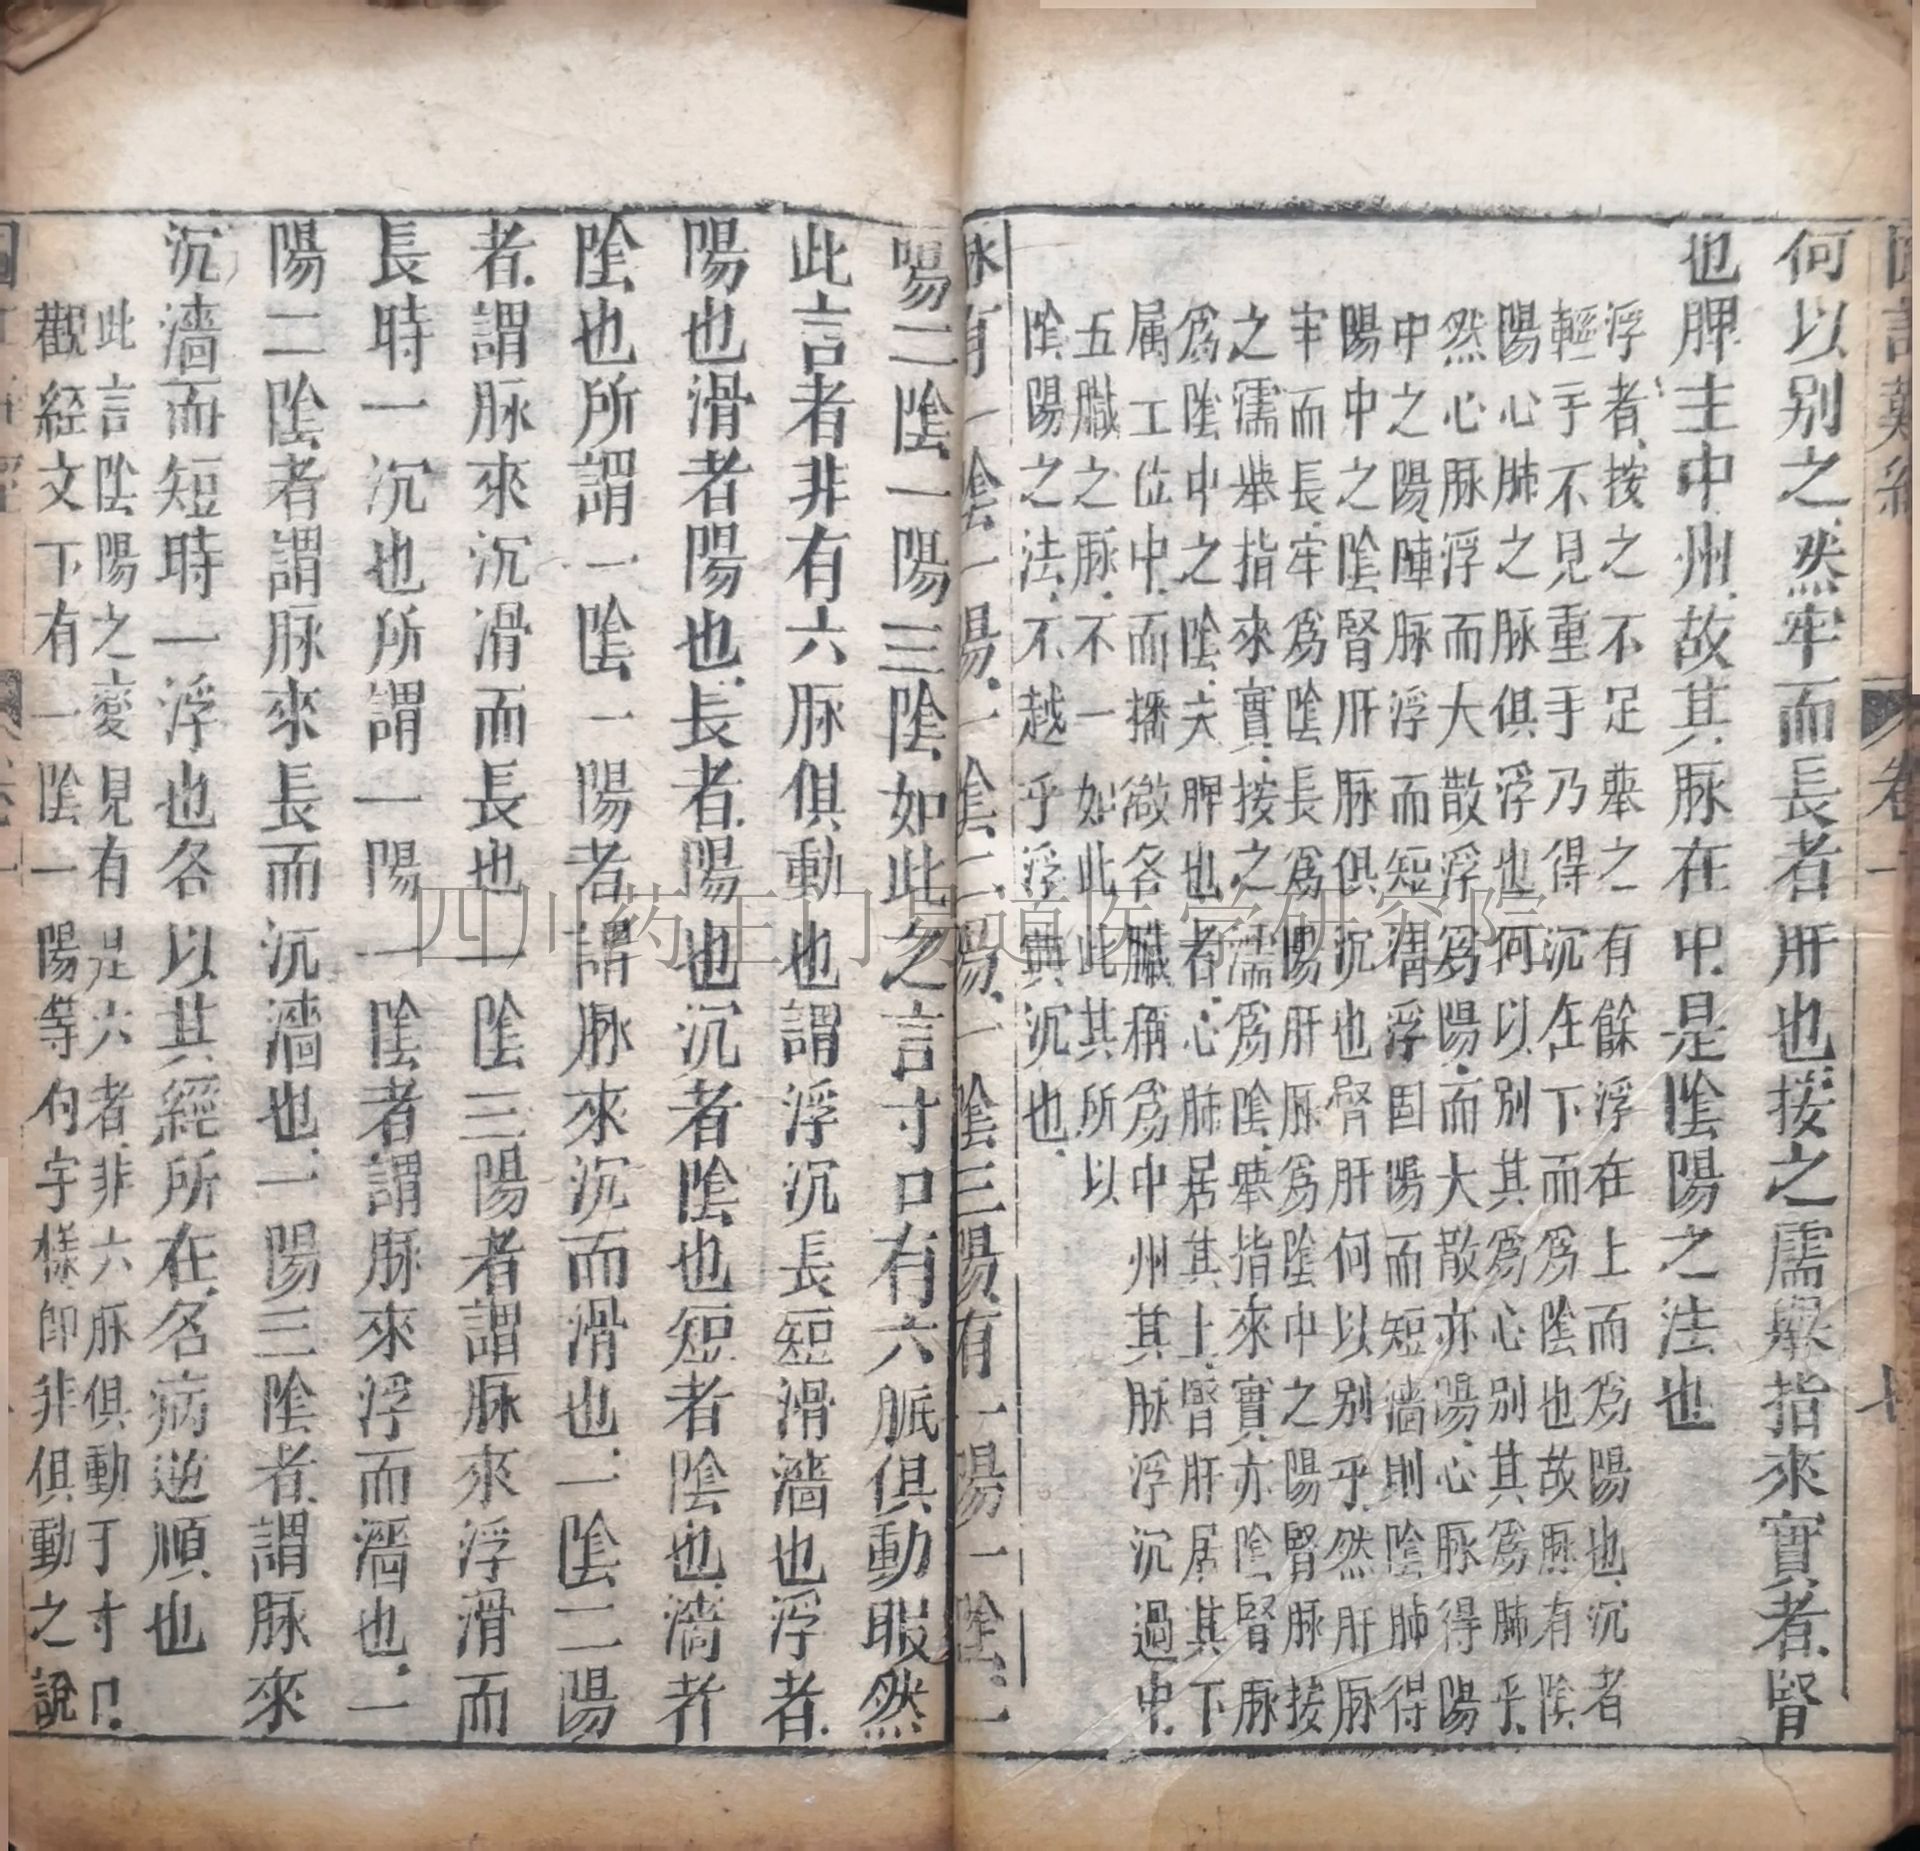 卷一
何以别之然牢而長者肝也按之濡舉指來實者腎
也脾主中州故其脈在中是陰陽之法也
浮者按之不足舉之有餘浮在上而為陽也沉者
輕手不見重手乃得沉在下而為陰也故脈有陰
陽心肺之脈俱浮也何以別其為心別其為肺乎
然心脈浮而大散浮為陽而大散亦陽心脈得陽
中之陽肺脈浮而短濇浮固陽而短濇則陰肺得
陽中之陰腎肝脈俱沉也腎肝何以別乎然肝脈
牢而長牢為陰長為陽肝脈為陰中之陽腎脈按
之濡舉指來實按之濡為陰舉指來實亦陰腎脈
為陰中之陰夫脾也者心肺居其上腎肝居其下
属工位中而播敷各臟稱為中州其脈浮沉過中
五臟之脈不一如此此其所以
陰陽之法不越乎浮與沉也
脉有一陰一陽一陰二陽一陰三陽有一陽一陰一
陽二陰一陽三陰如此之言寸口有六脈俱動耶然
此言者非有六脈俱動也謂浮沉長短滑濇也浮者
陽也滑者陽也長者陽也沉者陰也短者陰也濇者
陰也所謂一陰一陽者謂脈來沉而滑也一陰二陽
者謂脈來沉滑而長也一陰三陽者謂脈來浮滑而
長時一沉也所謂一陽一陰者謂脈來浮而濇也一
陽二陰者謂脈來長而沉濇也一陽三陰者謂脈來
沉濇而短時一浮也各以其經所在名病逆順也
此言陰陽之變見有是六者非六脈俱動于寸口
觀經文下有一陰一陽等句字樣即非俱動之說
四川药王门易道医学研究院